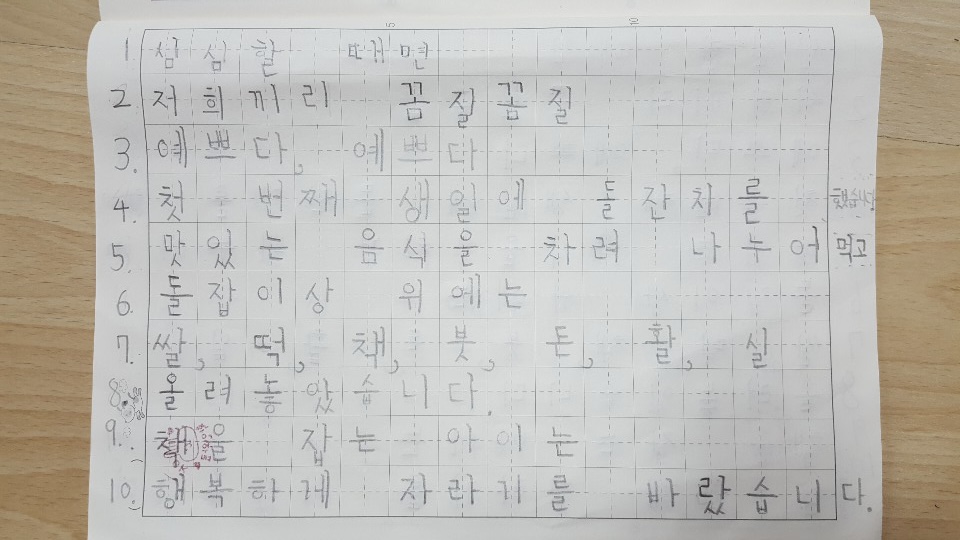 5 10
1 심심할 때면
2 저희끼리 꼼질꼼질
3. 예쁘다, 예쁘다
4. 첫 번째 생일에 돌잔치를 했습니다
5. 맛있는 음식을 차려 나누어 먹고
6. 돌잡이상 위에는
7. 쌀, 떡, 책, 붓, 돈, 활, 실
8. 올려 놓았습니다.
9. 책을 잡는 아이는
10. 행복하게 자라기를 바랐습니다.